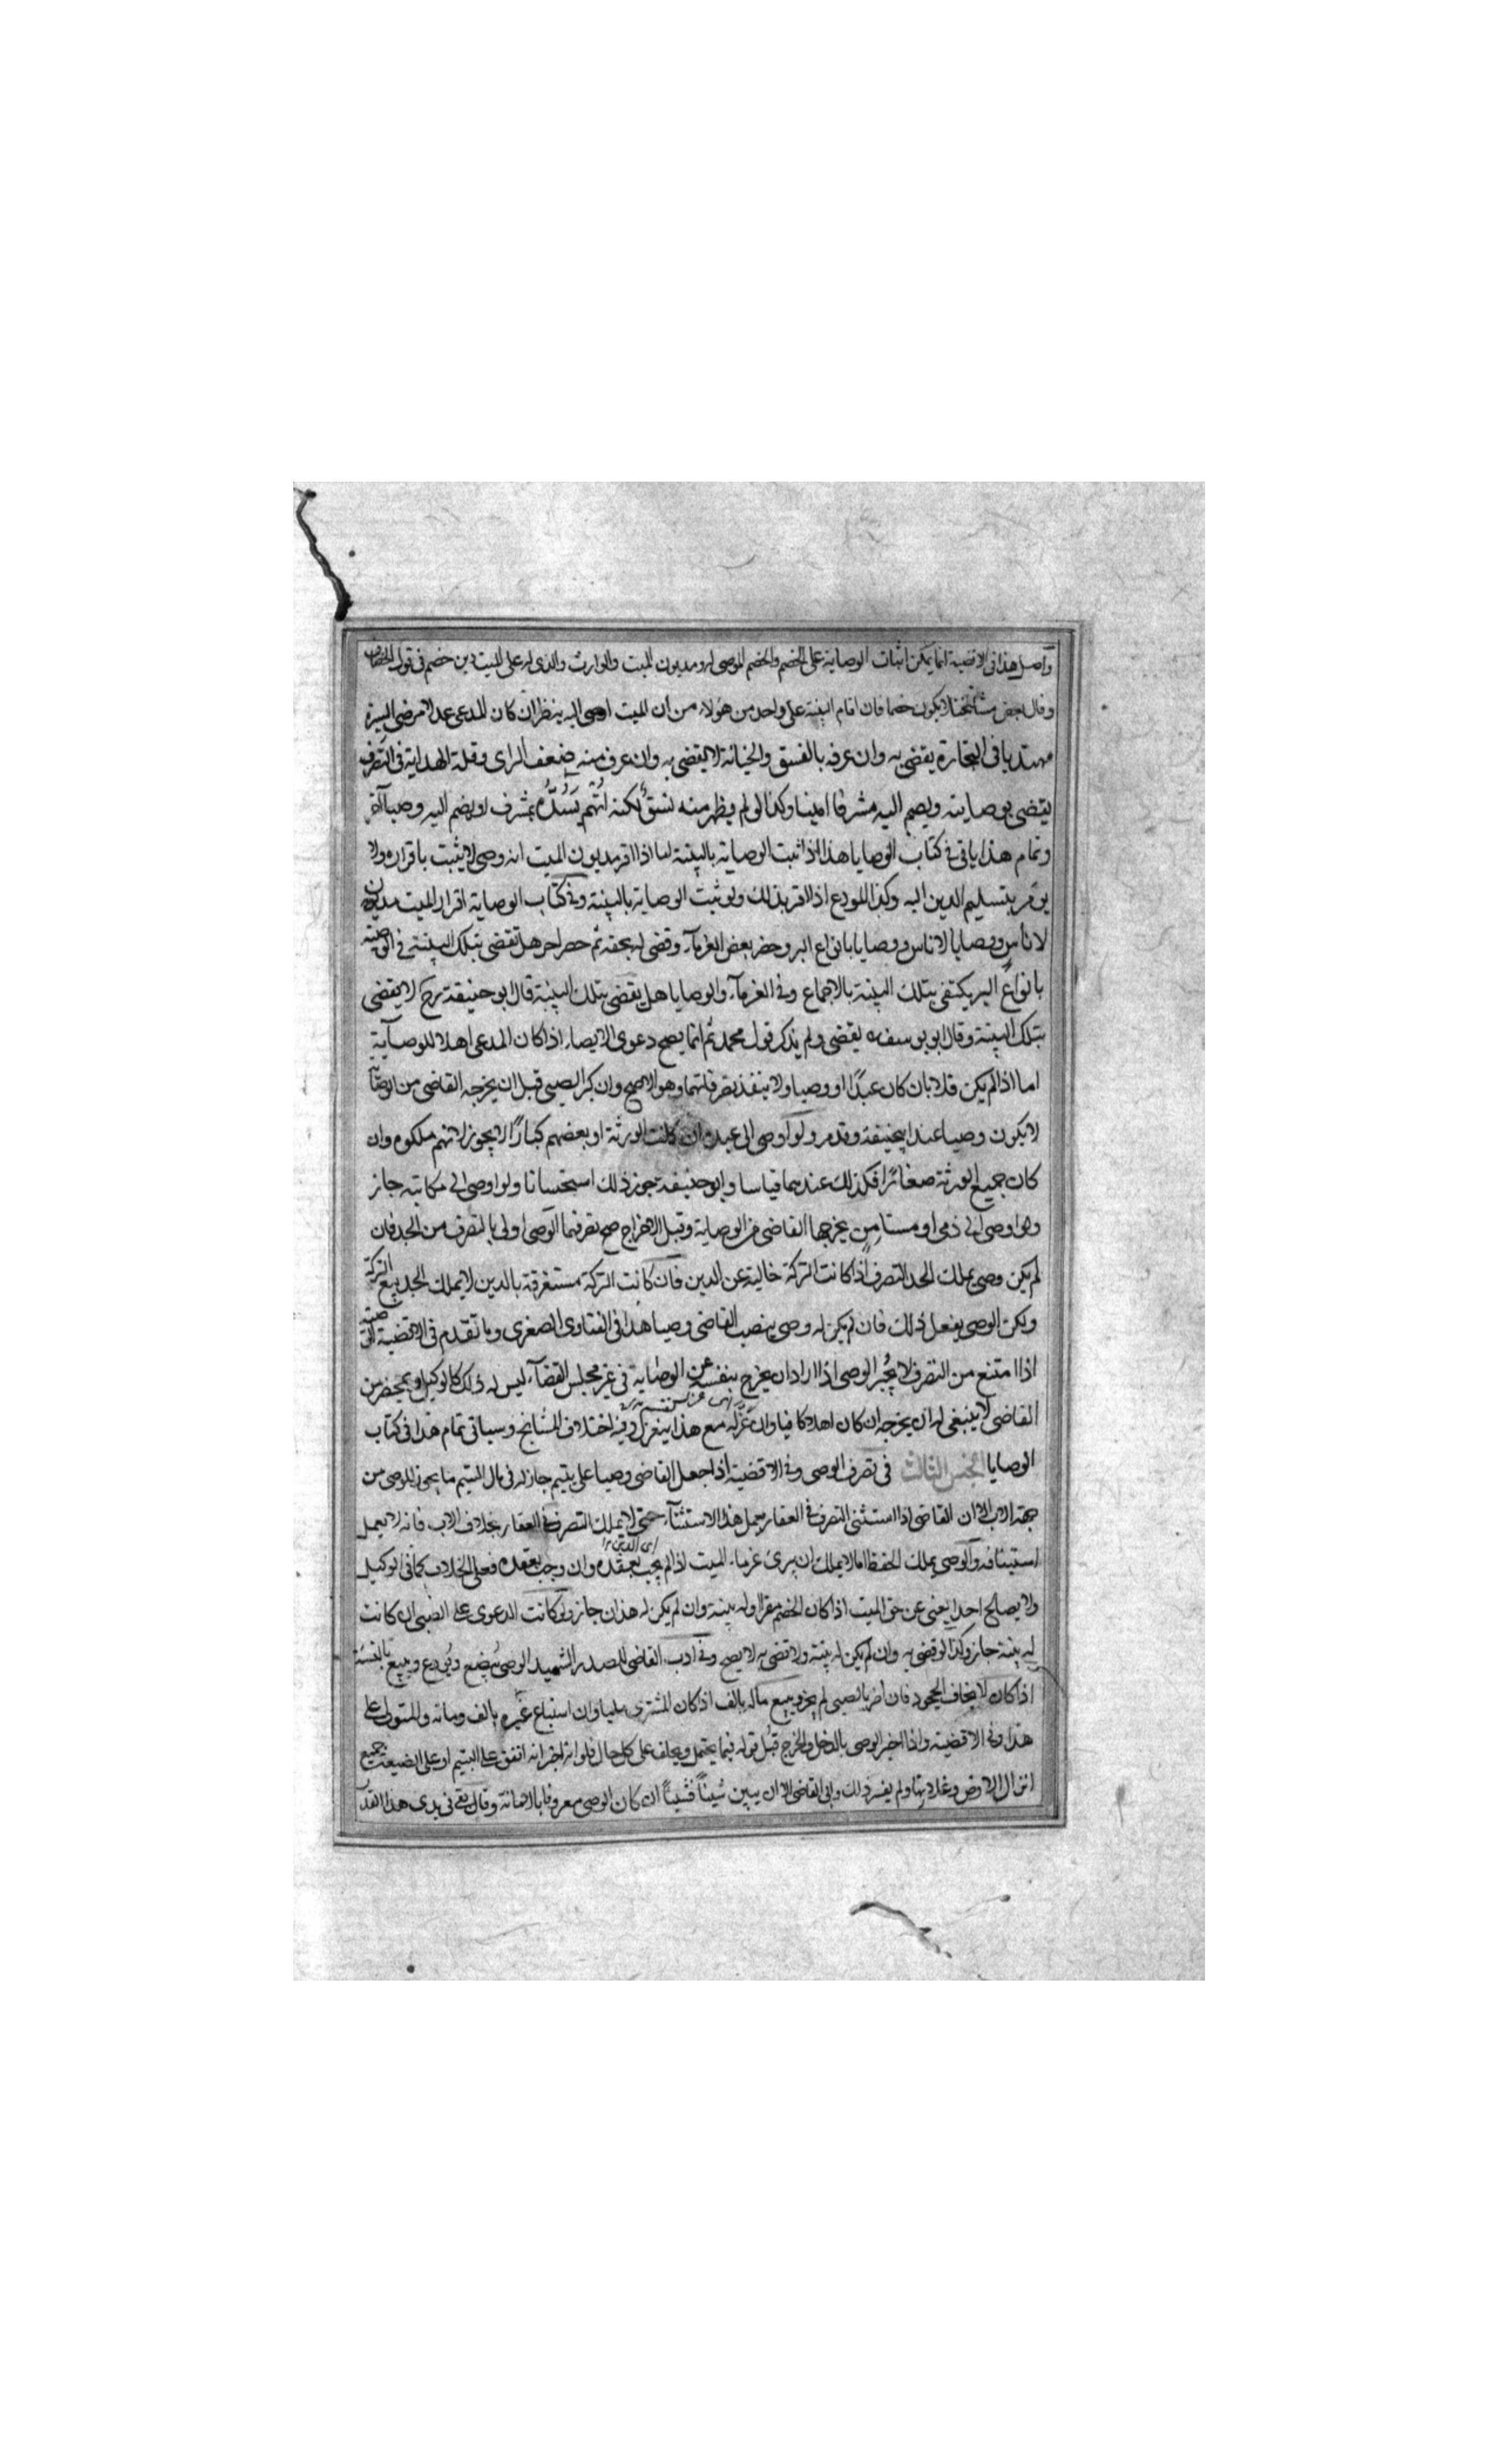 واصل هذا فى الاقضية انما يمكن اثبات الوصاية على الخصم والخصم الموصى له ومديون الميت والوارث والذى له على الميت دين خصم فى قول الخصاف
وقال بعض مشائخنا لا يكون خصما فان اقام البينة على واحد من هؤلاء من ان الميت اوصى اليه ينظر ان كان المدعى عدلا مرضى السيرة
مهتديا فى التجارة يقضى به وان عرفه بالفسق والخيانة لا يقضى به وان عرف منه ضعف الراى وقلة الهداية فى التصرف
يقضى بوصايته ويضم اليه مشرفا امينا وكذا لو لم يظهر منه فسق لكنه اتهم يسده بمشرف او يضم اليه وصيا آخر
وتمام هذا ياتى فى كتاب الوصايا هذا اذا ثبت الوصاية بالبينة اما اذا اقر مديون الميت انه وصى لا يثبت باقراره ولا
يؤمر بتسليم الدين اليه وكذا المودع اذا اقر بذلك ولو ثبت الوصاية بالبينة وفى كتاب الوصاية اقرار الميت مديون
لاناس ووصايا لاناس ووصايا بانواع البر وحضر بعض الغرمآء وقضى له بحقه ثم حضر اخر هل تقضى بتلك البينة فى الوصية
بانواع البر يكتفى بتلك البينة بالاجماع وفى الغرمآء والوصايا هل يقضى بتلك البينة قال ابو حنيفة رح لا يقضى
بتلك البينة وقال ابو يوسف يقضى ولم يذكر قول محمد ثم انما يصح دعوى الايصاء اذا كان المدعى اهلا للوصاية
اما اذا لم يكن فلا بان كان عبدًا او وصيا ولا ينفذ تصرفاتهما وهو الاصح وان كبر الصبى قبل ان يخرجه القاضى من الوصاية
لا يكون وصيا عند ابيحنيفة وقدمر ولو اوصى الى عبده ان كانت الورثة او بعضهم كبارًا لا يجوز لانهم ملكوه وان
كان جميع الورثة صغائرًا فكذلك عندهما قياسا وابو حنيفة يجوز ذلك استحسانا ولو اوصى الى مكاتبه جاز
ولو اوصى الى ذمى او مستامن يخرجها القاضى من الوصاية وقبل الاخراج صح تصرفهما الوصى اولى بالتصرف من الجد فان
لم يكن وصى يملك الجد التصرف اذا كانت التركة خالية عن الدين فان كانت التركة مستغرقة بالدين لا يملك الجد بيع التركة
ولكن الوصى يفعل ذلك فان لم يكن له وصى ينصب القاضى وصيا هذا فى الفتاوى الصغرى وما تقدم فى الاقضية
اذا امتنع من التصرف لا يجبر الوصى اذا اراد ان يخرج بنفسه عن الوصاية فى غير مجلس القضآء ليس له ذلك كالوكيل وبمحضر من
القاضى لا ينبغى له ان يخرجه ان كان اهلا كافيا وان عزله مع هذا ينعزل وفيه اختلاف المشايخ وسياتى تمام هذا فى كتاب
الوصايا الجنس الثالث فى تصرف الوصى وفى الاقضية اذا جعل القاضى وصيا على يتيم جاز له فى مال اليتيم ما يجوز للوصى من
جهة الاب الا ان القاضى اذا استثنى التصرف فى العقار يعمل هذا الاستثنآء حتى لا يملك التصرف فى العقار بخلاف الاب فانه لا يعمل
استثناؤه والوصى يملك الحفظ اما لا يملك ان يبرئ غرماء الميت اذا لم يجب بعقده وان وجب بعقده فعلى الخلاف كما فى الوكيل
ولا يصالح احدا يعنى عن حق الميت اذا كان الخصم مقرا وله بينة وان لم يكن له هذان جاز ولو كانت الدعوى على الصبى ان كانت
له بينة جاز وكذا لو قضى به وان لم يكن له بينة ولا قضى به لا يصح وفى ادب القاضى للصدر الشهيد الوصى يبضع ويودع ويبيع بالنسئة
اذا كان لا يخاف الجحود فان اضر بالصبى لم يجز ويبيع ماله بالف اذا كان المشترى مليا وان استباع غيره بالف ومائة والمتولى على
هذا وفى الاقضية واذا اخبر الوصى بالدخل والخرج قبل قوله فيما يحتمل ويحلف على كل حال فلو انه اخبر انه انفق على اليتيم او على الضيعة جميع
انزال الارض وغلاتها ولم يفسر ذلك وابى القاضى الا ان يبين شيئًا فشيئًا ان كان الوصى معروفا بالامانة وقال بقى فى يدى هذا القدر